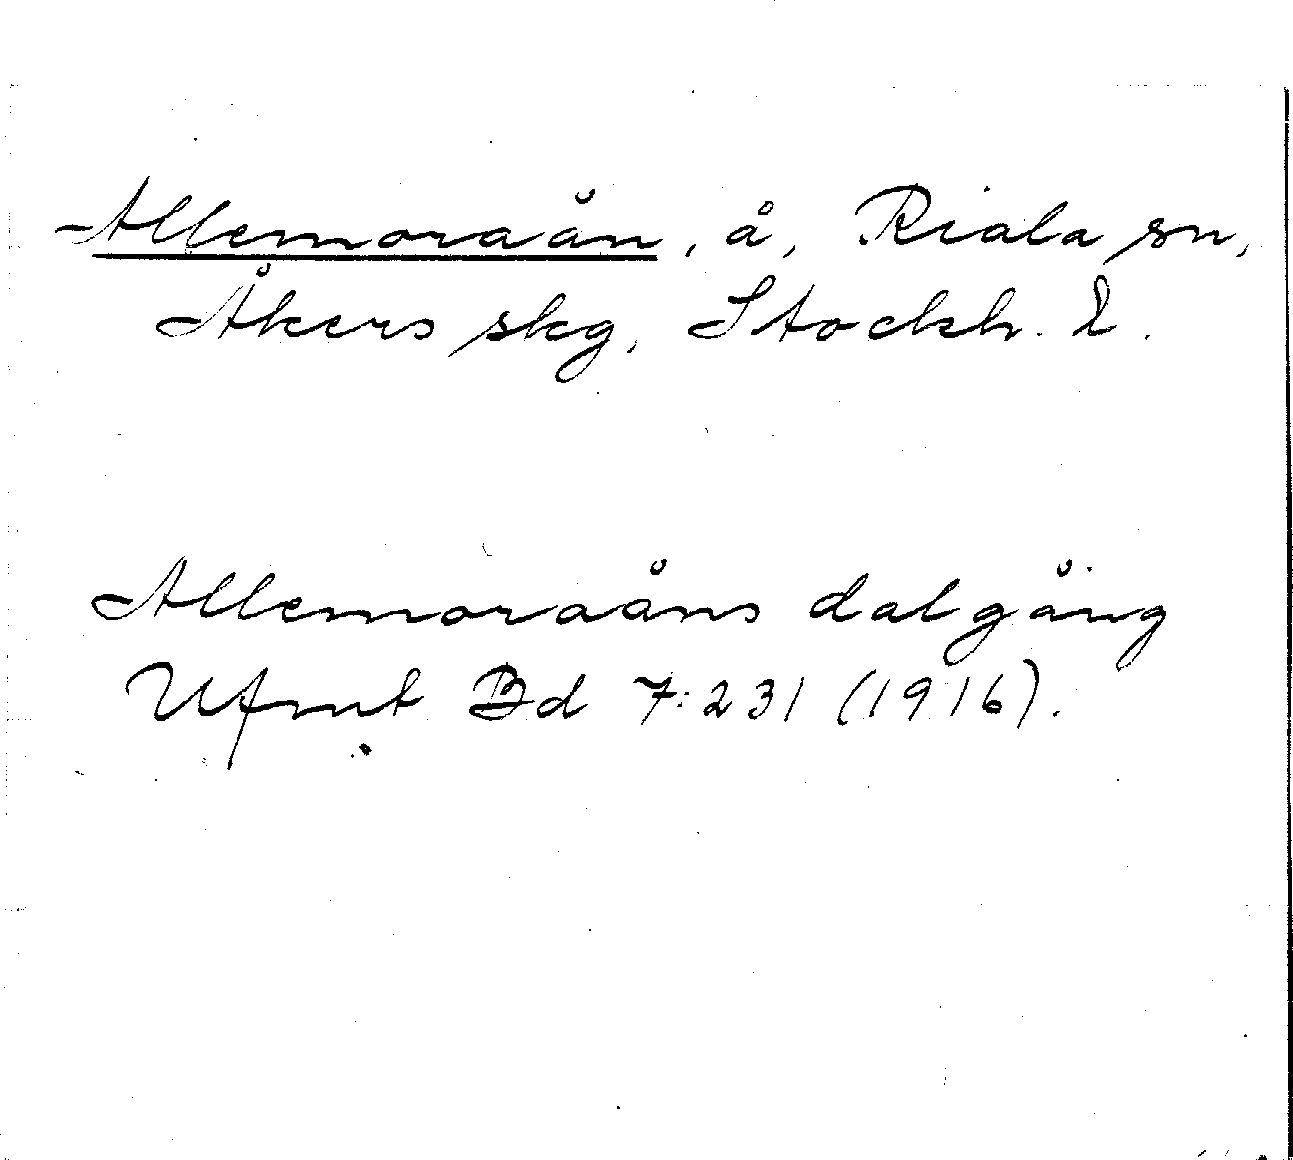 Allemoraån, å, Riala sn,
Åkers skg, Stockh. l.
Allemoraåns dalgång
Ufmt Bd 7:231 (1916).